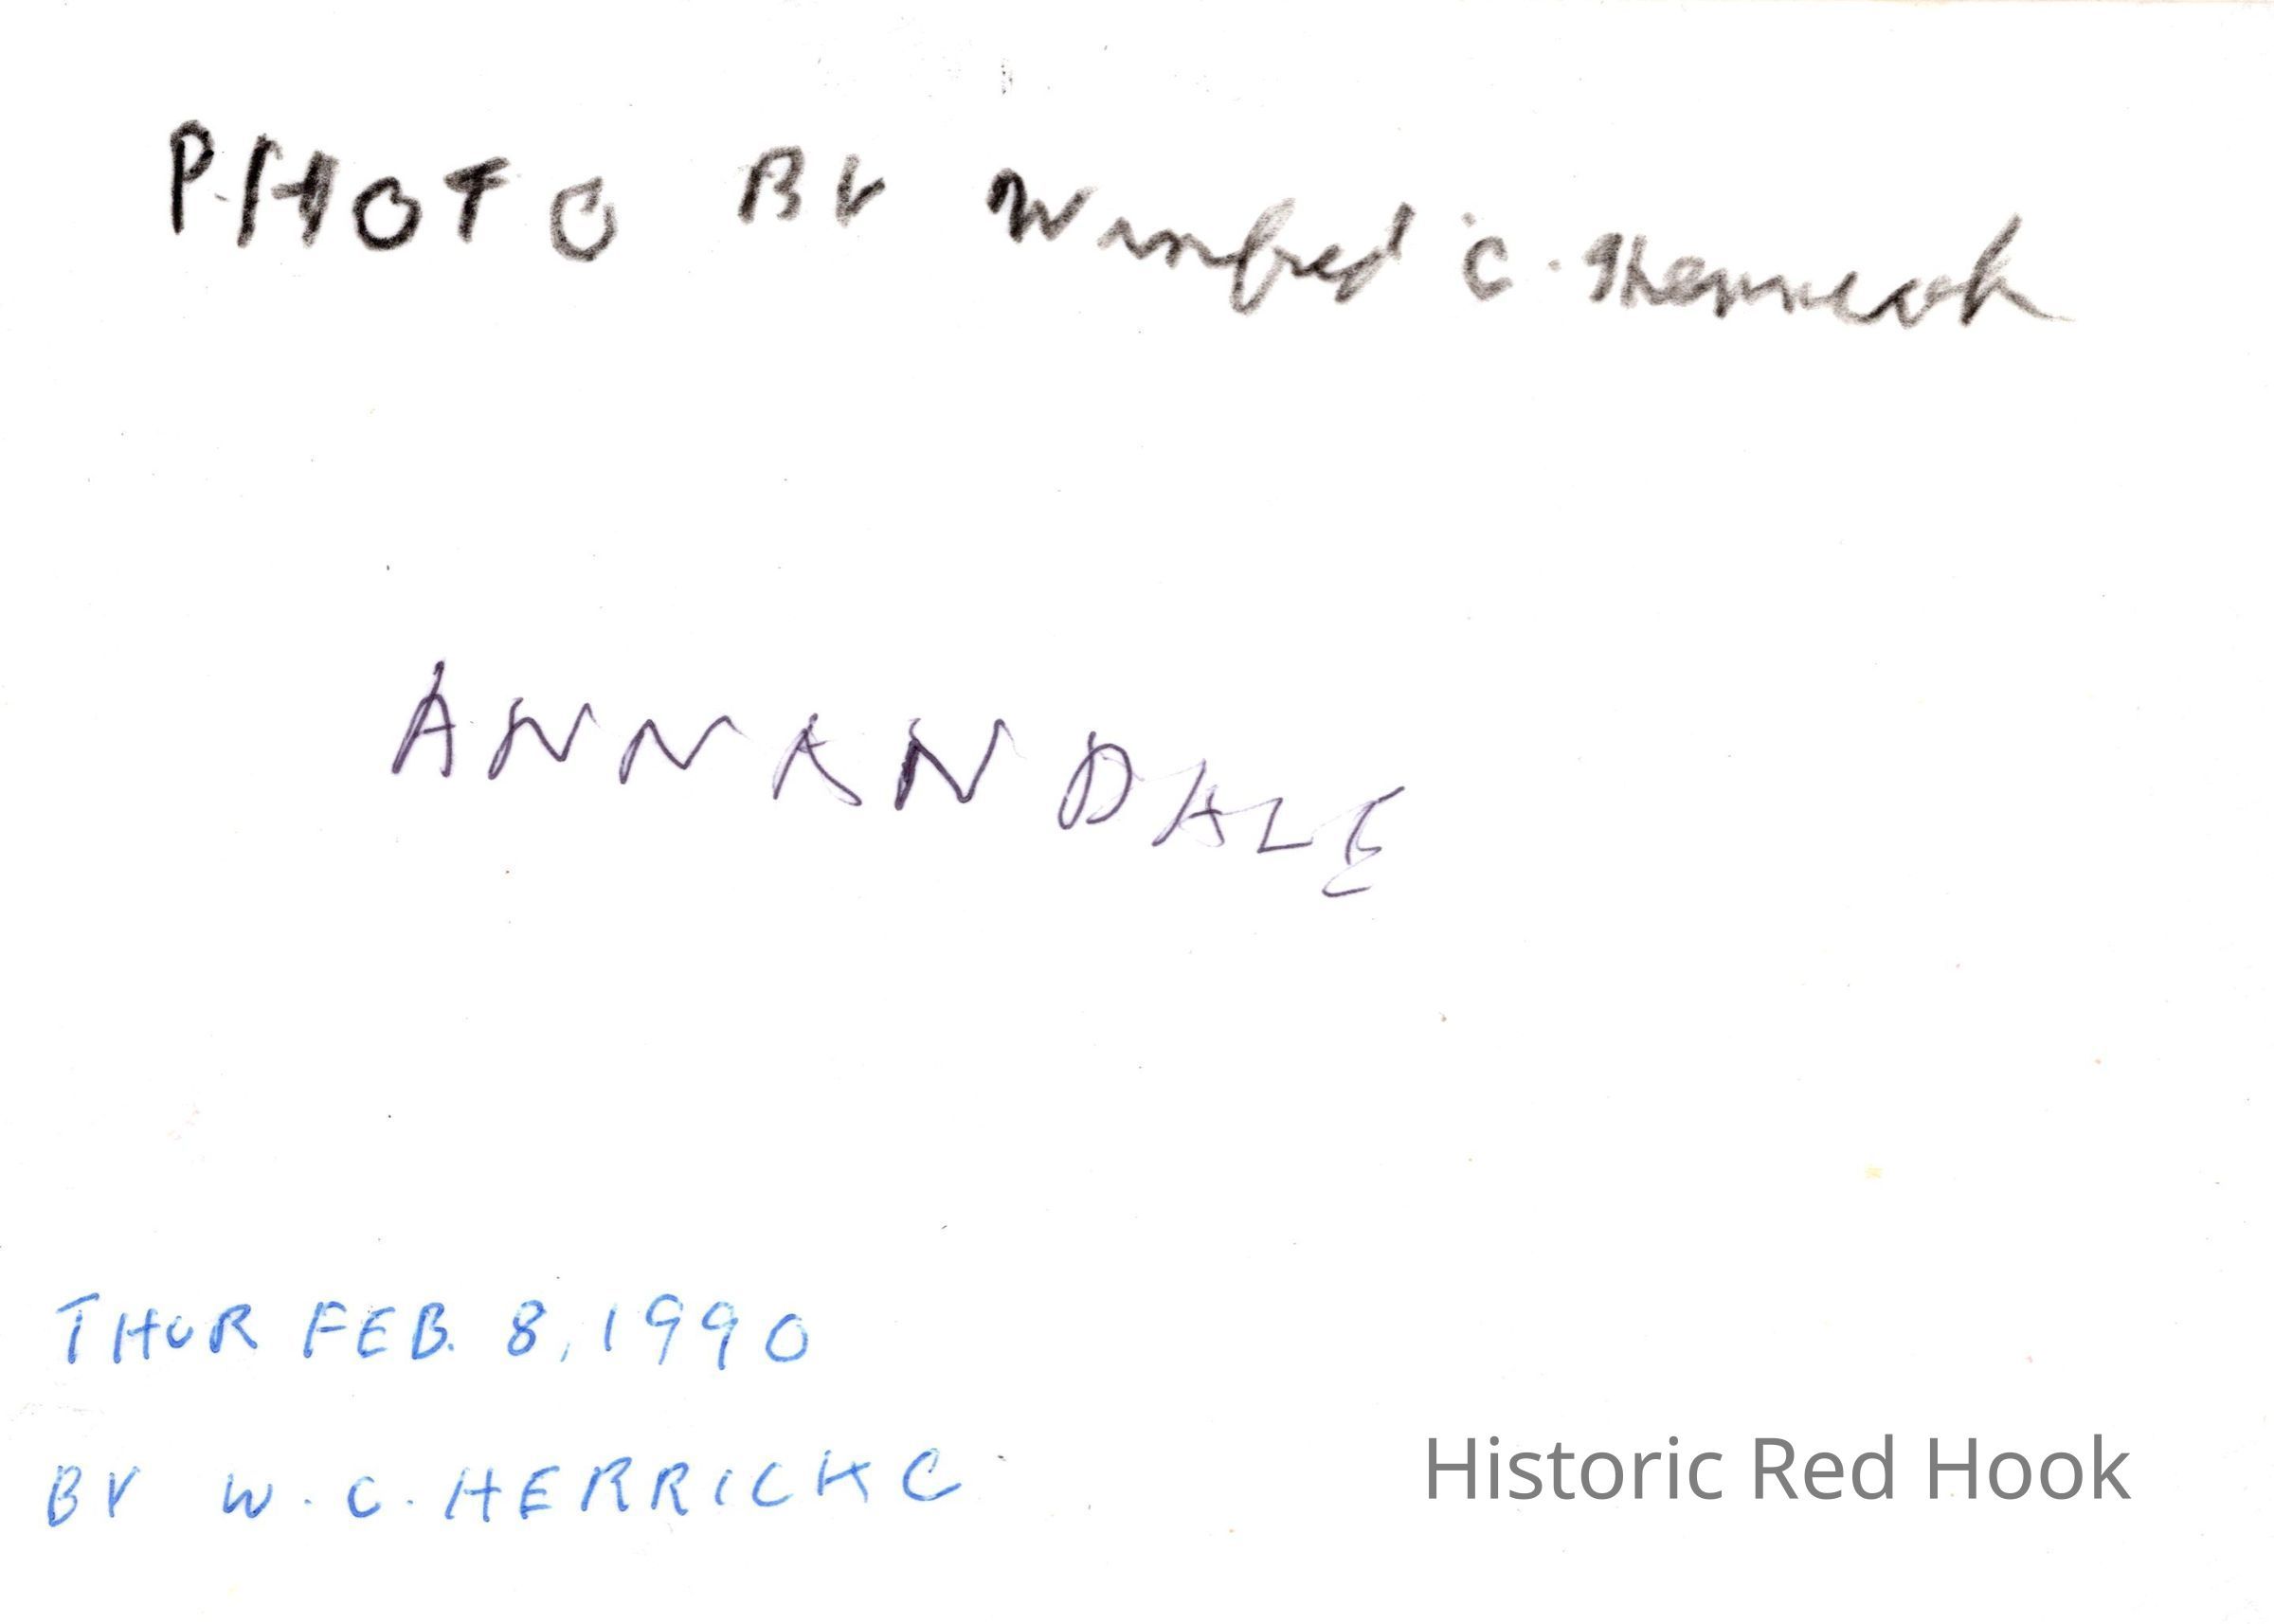 PHOTO BY Winfred C. Herrick
ANNANDALE
THUR FEB. 8, 1990
BY W. C. HERRICK C
Historic Red Hook